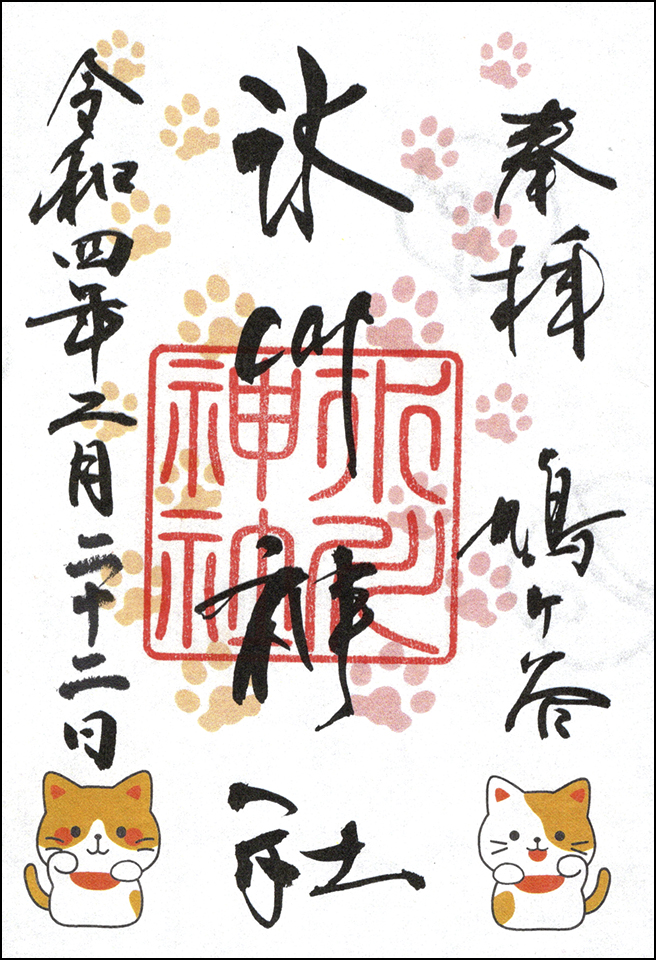 奉拝 鳩ヶ谷
氷川神社
令和四年二月二十二日